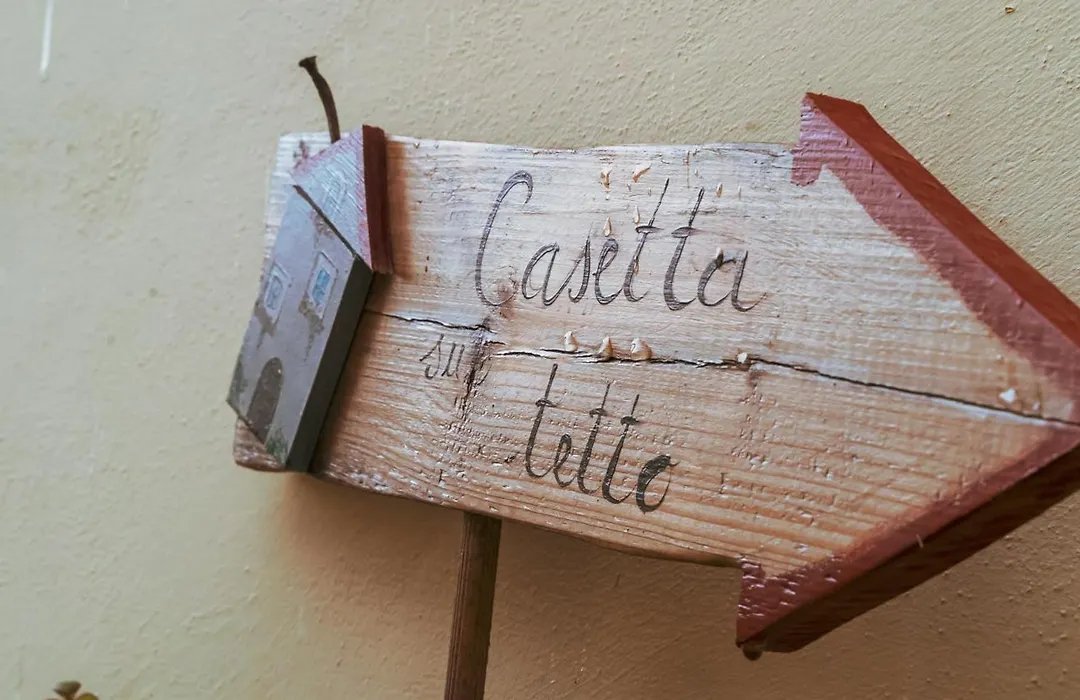 Casetta
sul
tetto